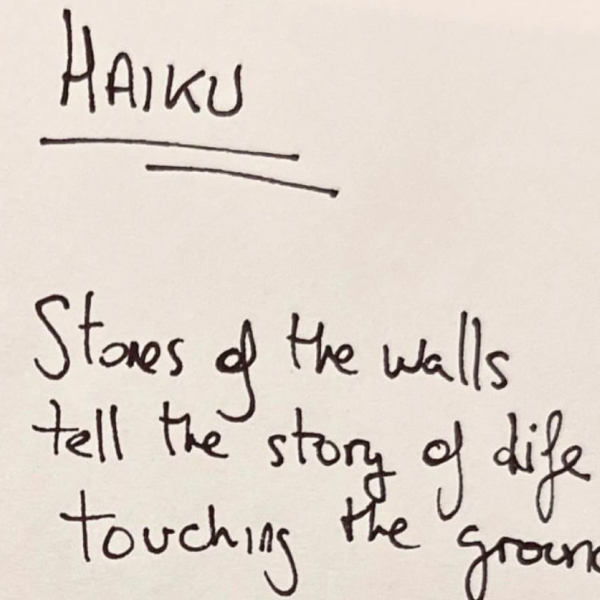 HAIKU
Stones of the walls
tell the story of life
touching the groun